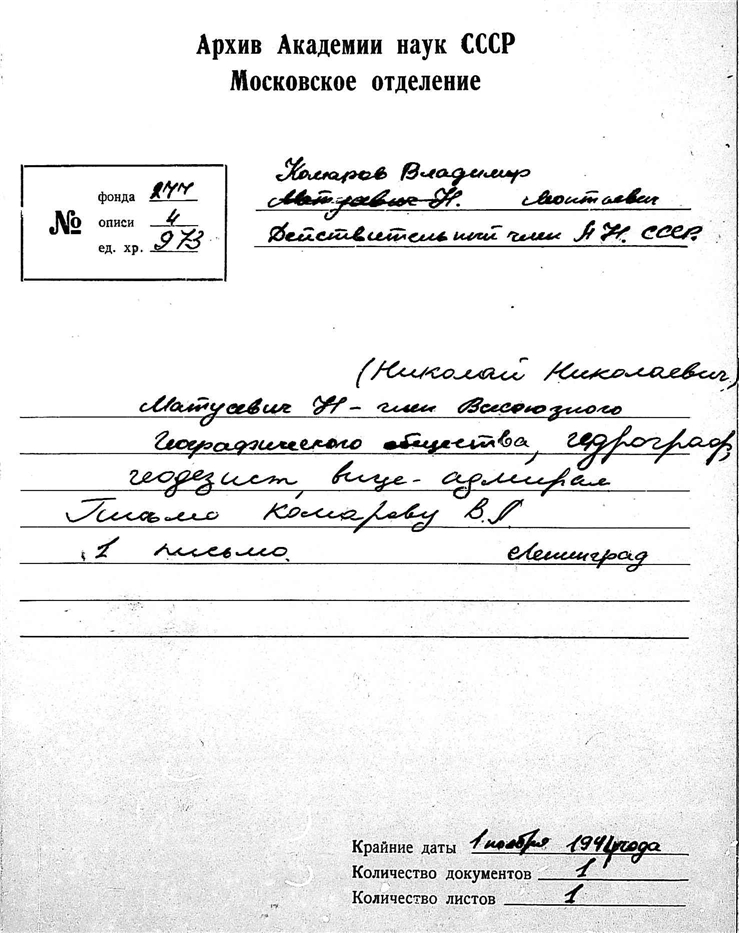 Архив Академии наук СССР
Московское отделение
№
фонда 277
описи 4
ед. хр. 973
Комаров Владимир
Матусевич Н. Леонтьевич
Действительный член АН. СССР.
(Николай Николаевич)
Матусевич Н - член Всесоюзного
Географического общества, гидрограф,
геодезист, вице-адмирал
Письмо Комарову В.Л
1 письмо. Ленинград
Крайние даты 1 ноября 1944 года
Количество документов 1
Количество листов 1